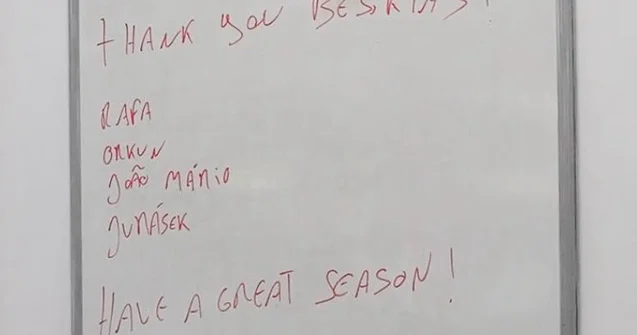 THANK YOU BESIKTAS!
RAFA
ORKUN
JOÃO MÁRIO
JURÁSEK
HAVE A GREAT SEASON!